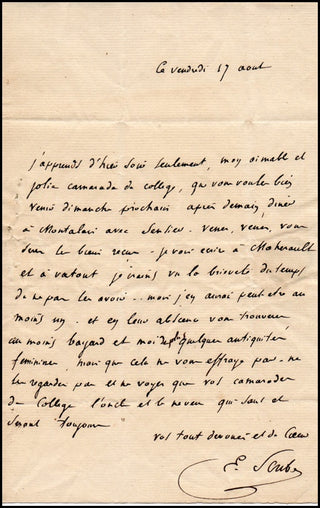 Ce vendredi 17 aout
j'apprends d'hier soir seulement, mon aimable et
jolie camarade de college, que vous voulez bien
venir dimanche prochain après demain, diner
à Montalais avec venez, venez, vous
serez le bien recu - je vais ecrire à Maherault
et à vatout je crains vu la brieveté du temps
de ne pas les avoir - mais j'en aurai peut etre au
moins un. et en leur absence vous trouverez
au moins bayard et moi de plus quelques antiquités
feminines, mais que cela ne vous effraye pas - ne
les regardez pas et ne voyez que vos camarades
de college l'oncle et le neveu qui sont et
seront toujours
vos tout devoués et de Coeur
E. Scribe